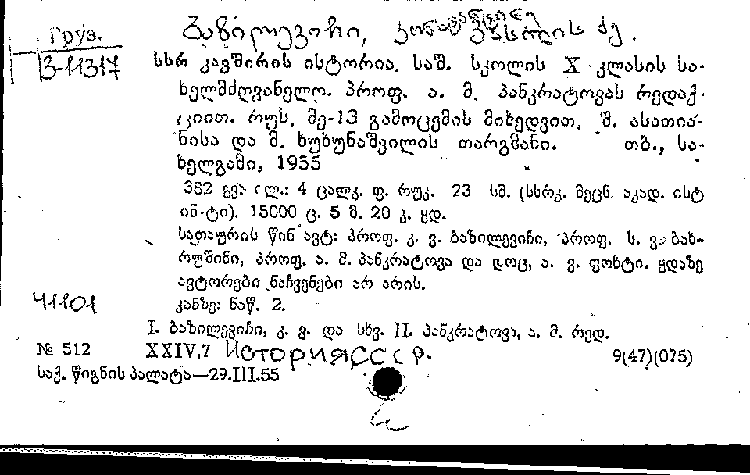 Груз.
ბაზილევიჩი, კონსტანტინე
3-11317
სსრ კავშირის ისტორია. საშ. სკოლის X კლასის სა-
ხელმძღვანელო. პროფ. ა. მ. პანკრატოვას რედაქ-
ციით. რუს. მე-13 გამოცემის მიხედვით. შ. ასათია-
ნისა და მ. ხუხუნაშვილის თარგმანი. თბ., სა-
ხელგამი, 1955
382 გვ. ილ.: 4 ცალკ. ფ. რუკ. 23 სმ. (სსრკ. მეცნ. აკად. ისტ
ინ-ტი). 15000 ც. 5 მ. 20 კ. ყდ.
სათაურის წინ ავტ: პროფ. კ. ვ. ბაზილევიჩი, პროფ. ს. ვ. ბახ-
რუშინი, პროფ. ა. მ. პანკრატოვა და დოც. ა. ვ. ფოხტი. ყდაზე
ავტორები ნაჩვენები არ არის.
41101
კანზე: ნაწ. 2.
I. ბაზილევიჩი, კ. ვ. და სხვ. II. პანკრატოვა, ა. მ. რედ.
№ 512 XXIV,7 ИСТОРИЯ СССР. 9(47)(075)
საქ. წიგნის პალატა—29.III.55